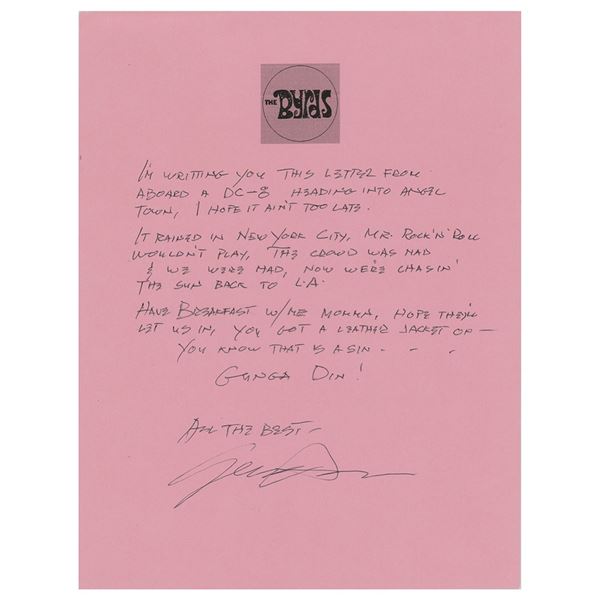 THE BYRDS
I'M WRITTING YOU THIS LETTER FROM
ABOARD A DC-8 HEADING INTO ANGEL
TOWN, I HOPE IT AIN'T TOO LATE.
IT RAINED IN NEW YORK CITY, MR. ROCK 'N' ROLL
WOULDN'T PLAY, THE CROWD WAS MAD
& WE WERE HAD, NOW WE'RE CHASIN'
THE SUN BACK TO L.A.
HAVE BREAKFAST W/ME MOMMA, HOPE THEY'LL
LET US IN, YOU GOT A LEATHER JACKET ON —
YOU KNOW THAT IS A SIN - - -
GUNGA DIN!
ALL THE BEST –